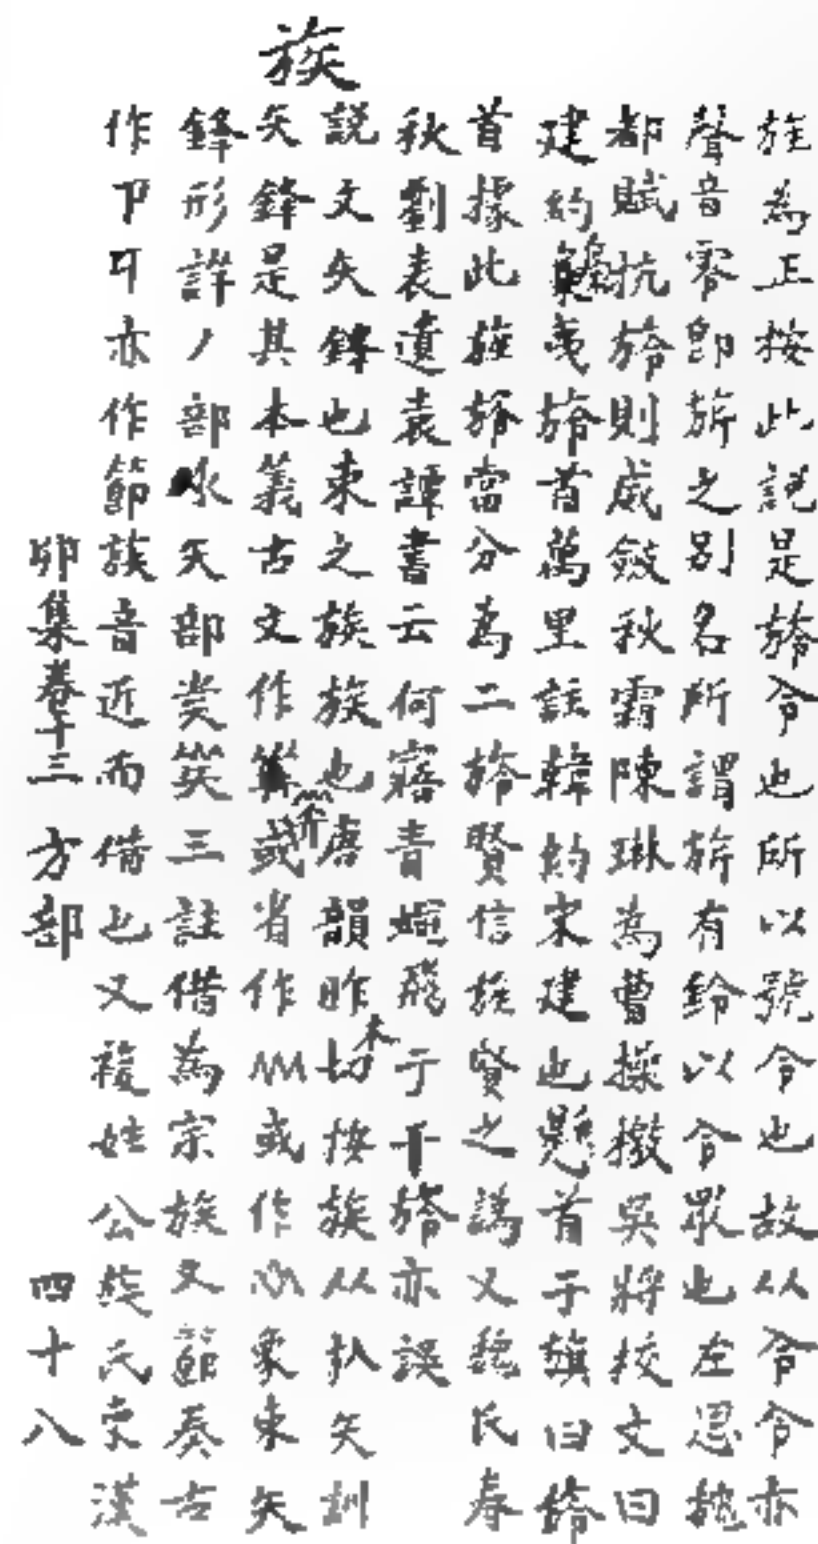 旌為正按此説是旍令也所以號令也故从令令亦
聲音零即旂之別名所謂旂有鈴以令眾也左思魏
都賦抗旍則威斂秋霜陳琳為曹操檄吳將校文曰
建約夷旍首萬里註韓約宋建也懸首于旗曰旍
首據此旌旍當分為二旍賢信旌賢之譌又魏氏春
秋劉表遺袁譚書云何寤青蠅飛于干旍亦誤
族
説文矢鋒也束之族族也唐韻昨木切按族从㫃矢訓
矢鋒是其本義古文作或省作或作象束矢
鋒形詳丿部矢部三註借為宗族又節奏古
作卪亦作節族音近而借也又複姓公族氏東漢
卯集卷十三 方部 四十八